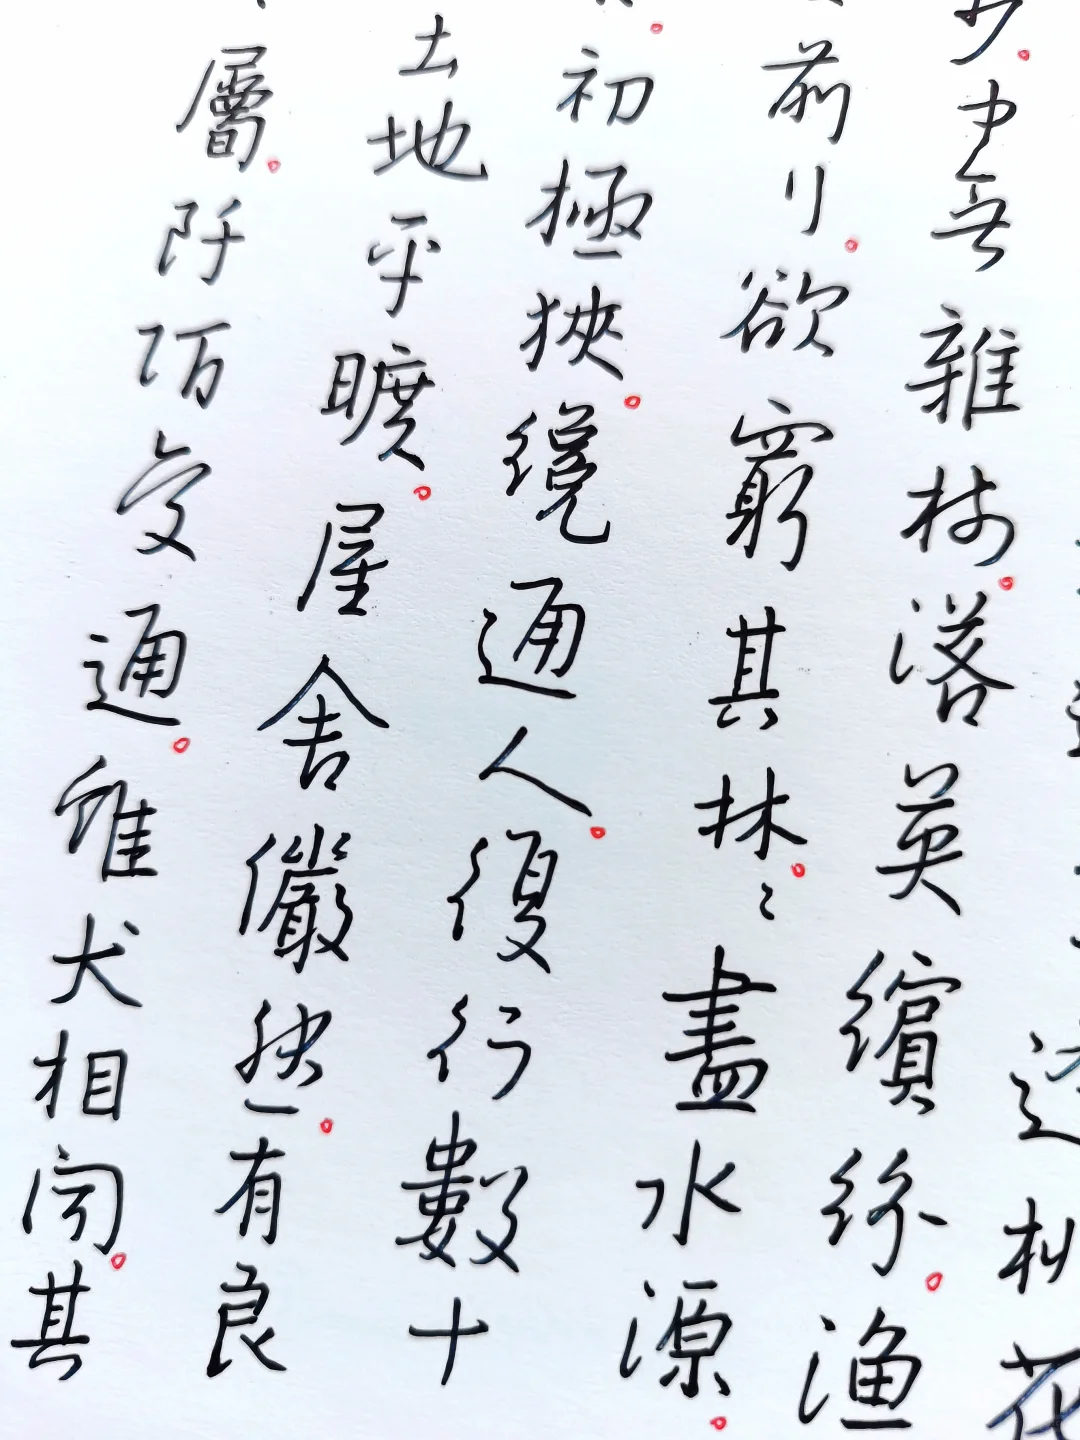 逢桃花
步。中無雜樹。落英繽紛。漁
前行。欲窮其林。〻盡水源。
初極狹。纔通人。復行數十
土地平曠。屋舍儼然。有良
層。阡陌交通。雞犬相聞。其